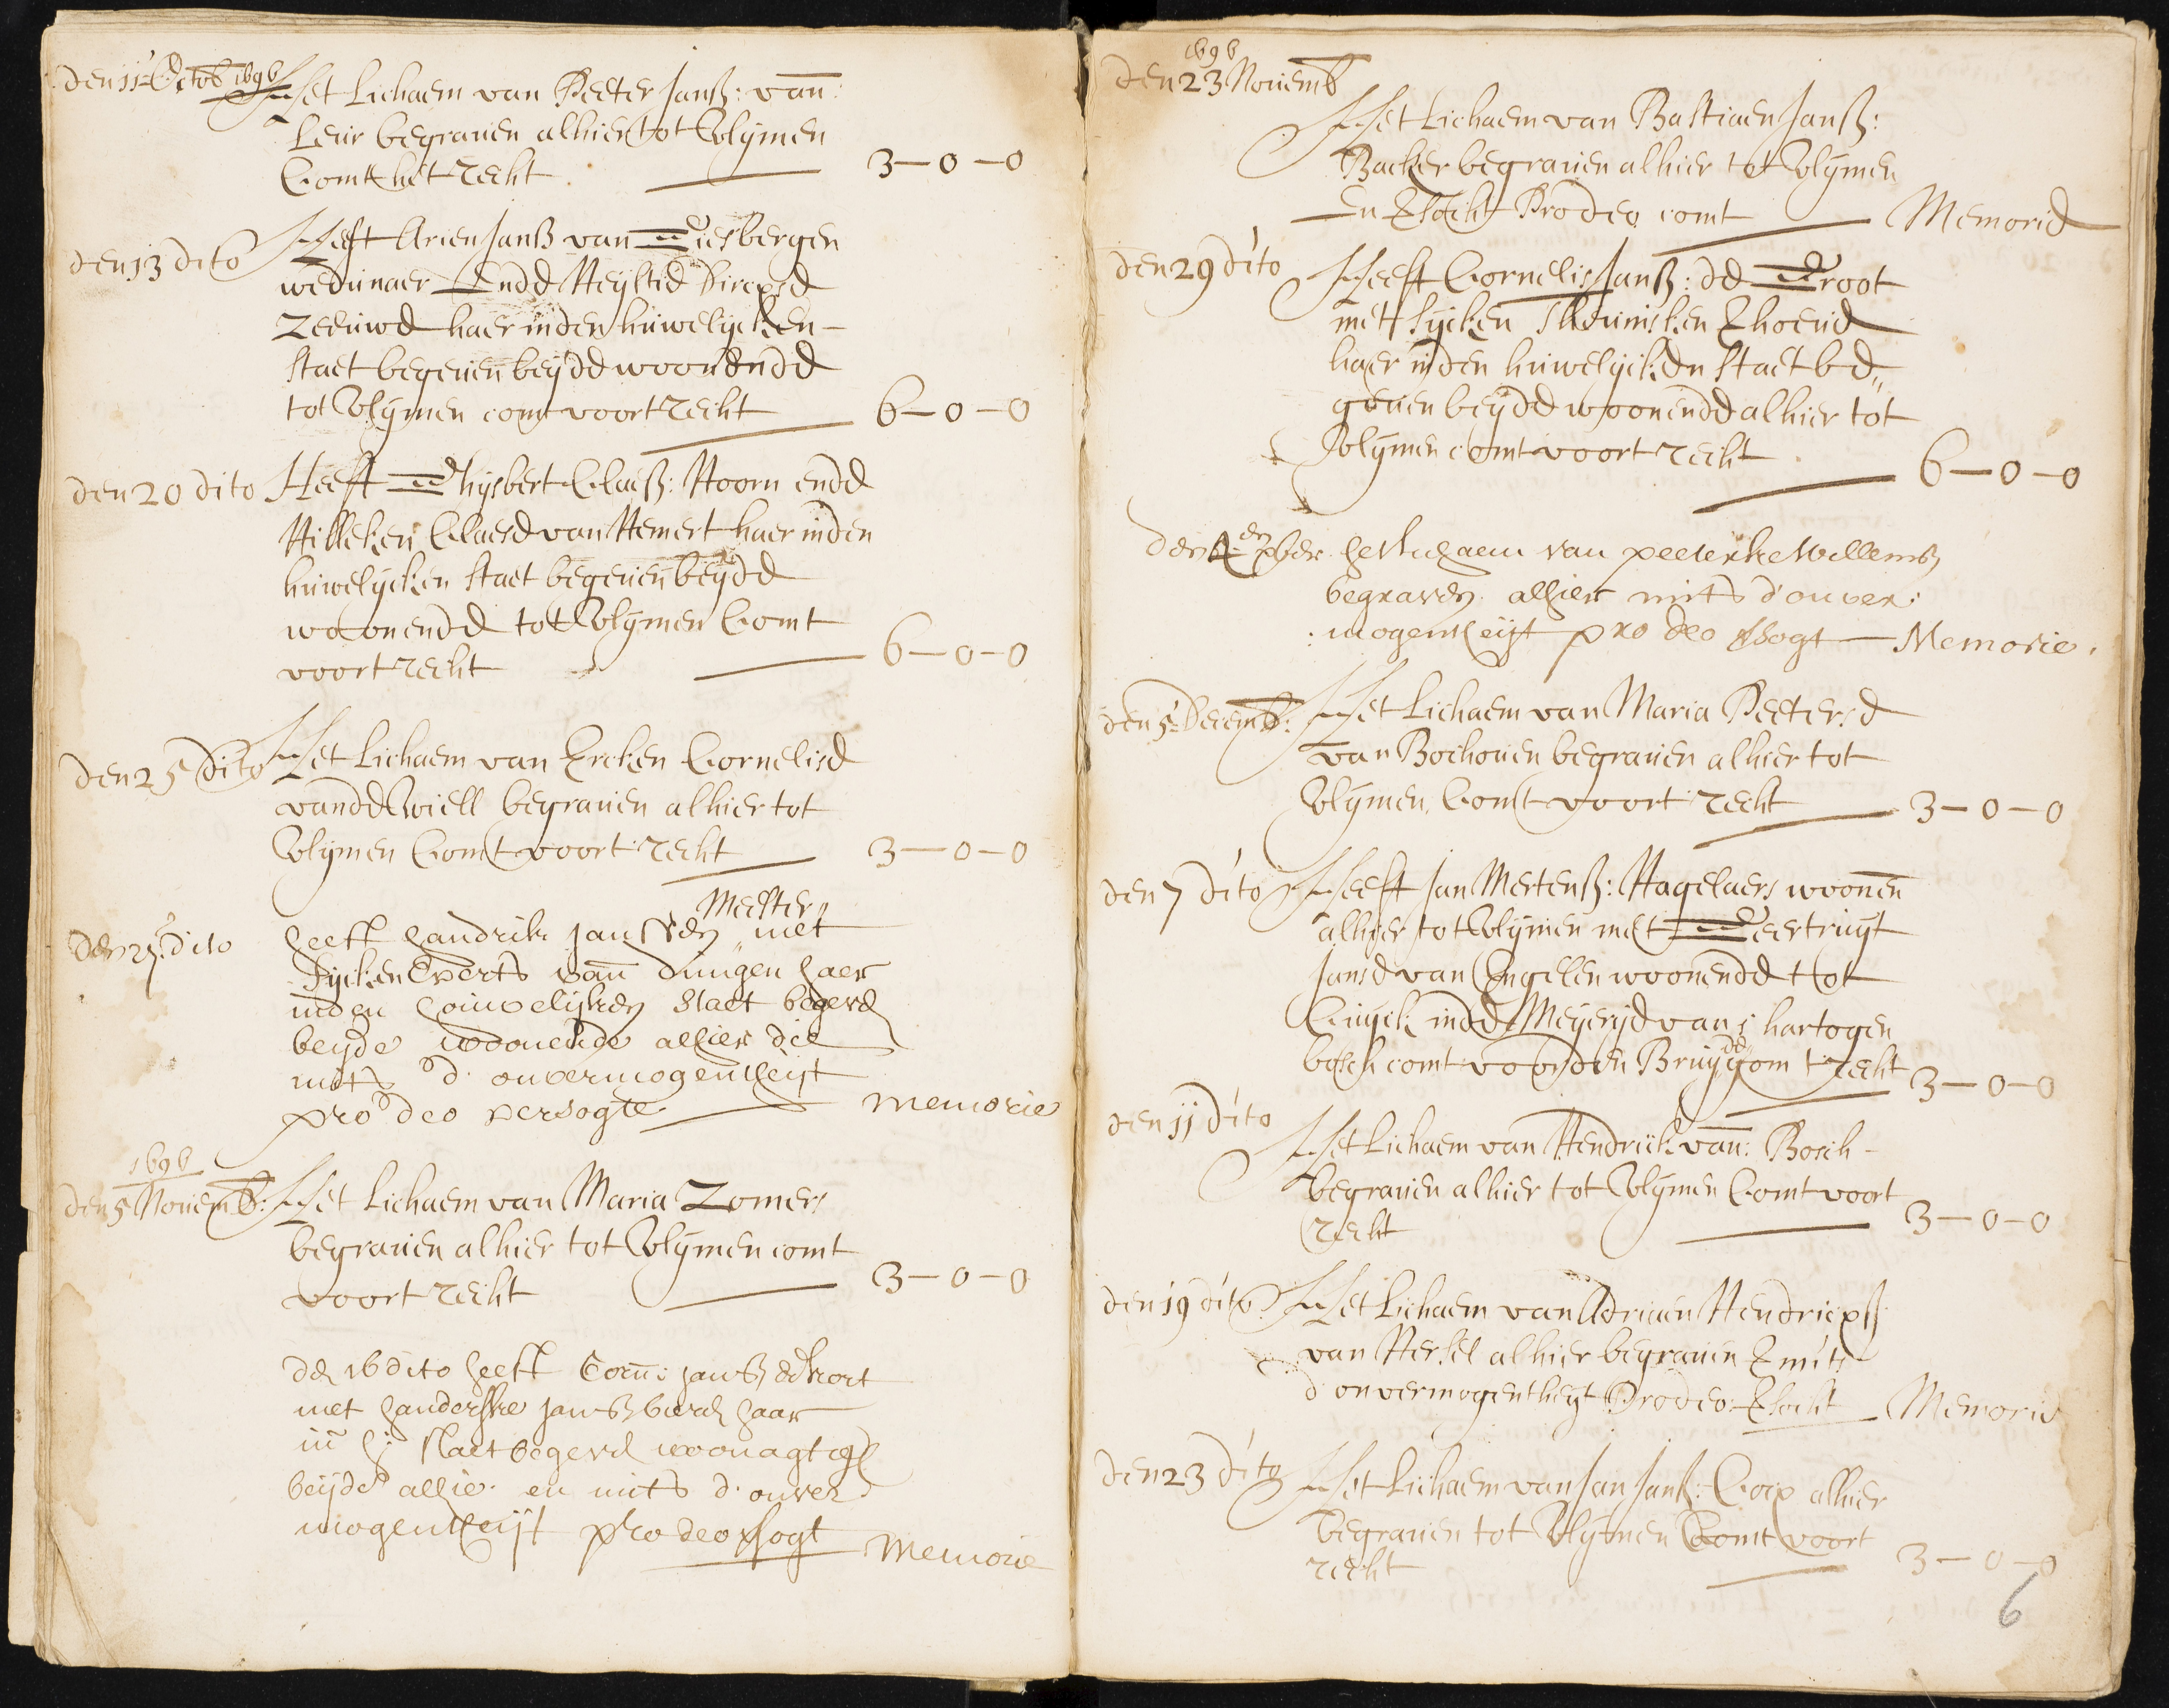 den 11 Octob 1696
Het Lichaem van Peeter Janß: van
Leur begraven alhier tot Vlymen
Comt het recht 3-0-0
den 13 dito
Heeft Arien Janß van Giesbergen
wedunaer Ende Heyltie Dircxse
Zeeuwe haer inden huwelycken
staet begeven beyde woonende
tot Vlymen comt voort recht 6-0-0
den 20 dito
Heeft Ghysbert Claeß: Hoorn ende
Hilleken Claese van Hemert haer inden
huwelycken staet begeven beyde
woonende tot Vlymen Comt
voort recht 6-0-0
den 25 dito
Het Lichaem van Ercken Cornelise
vande Wiell begraven alhier tot
Vlymen Comt voort recht 3-0-0
den 27 dito
Meester
heeft handrik Jan met
Fycken Everts van Dungen haer
inden houwelyken staet begeven
beyde woonende alhier die
mits d' onvermogentheyt
pro deo versogte memorie
1696
den 5 Novemb:
Het Lichaem van Maria Zomers
begraven alhier tot Vlymen comt
voort recht 3-0-0
den 16 dito heeft Corn: Janß de
met handerske Janß haar
in h: staet begeven woonagtigh
beyde alhier en mits d' onver
mogentheyt pro deo vsogt Memorie
1696
den 23 Novemb
Het Lichaem van Bastiaen Janß:
Backer begraven alhier tot Vlymen
En vsocht Prodeo comt Memorie
den 29 dito
Heeft Cornelis Janß: de Groot
met Fycken Theunisken Verhoeve
haer inden huwelycken staet be„
geven beyde woonende alhier tot
Vlymen comt voort recht 6-0-0
den 4en xber
het lichaem van peeterke Willemß
begraven alhier mits d'onver:
mogentheyt pro deo vsogt Memorie.
den 5 Decemb:
Het Lichaem van Maria Peeterse
van Bochoven begraven alhier tot
Vlymen Comt voort recht 3-0-0
den 7 dito
Heeft Jan Mertenß: Hagelaers woonen
alhier tot Vlymen met Geertruyt
Janse van Engelen woonende tot
Cuyck inde Meyerye van s hartogen
bosch comt voor den Bruydegom t recht 3-0-0
den 11 dito
Het Lichaem van Hendrick van: Bosch
begraven alhier tot Vlymen Comt voort
recht 3-0-0
den 19 dito
Het Lichaem van Adriaen Hendricxß
van Hersel alhier begraven mits
d'onvermogentheyt Prodeo vsocht Memorie
den 23 dito
Het Lichaem van Jan Janß: Gorx alhier
begraven tot Vlymen Comt voort
recht 3-0-0
6